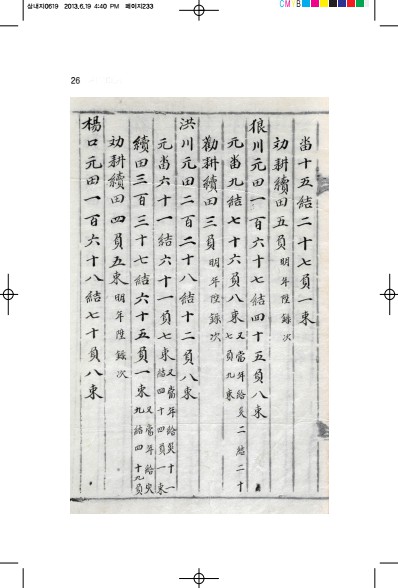 삼내지0619 2013.6.19 4:40 PM 페이지233
CM B
26
畓十五結二十七負一束
劝耕續田五負 明年陞錄次
狼川元田一百六十七結四十五負八束
元畓九結七十六負八束 又當年給災二結二十七負九束
勸耕續田三負 明年陞錄次
洪川元田二百二十八結十二負八束
元畓六十一結六十一負七束 又當年給災十一結四十四負一束
續田三百三十七結六十五負一束 又當年給災九結四十九負
劝耕續田四負五束 明年陞錄次
楊口元田一百六十八結七十負八束